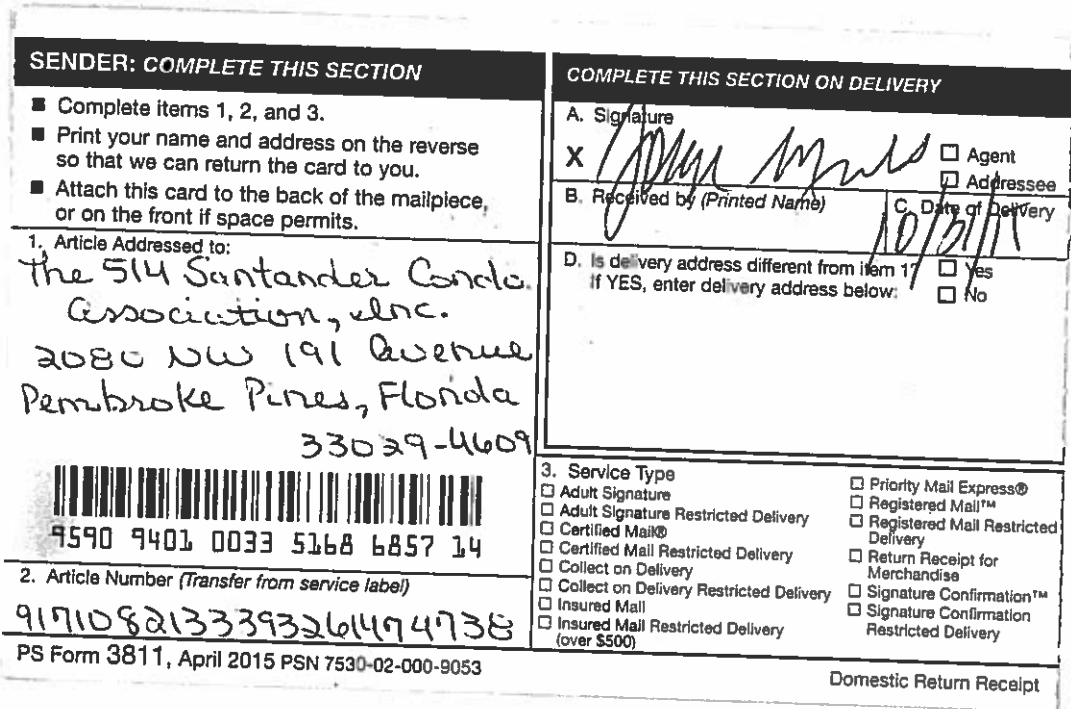 SENDER: COMPLETE THIS SECTION
■ Complete items 1, 2, and 3.
■ Print your name and address on the reverse
so that we can return the card to you.
■ Attach this card to the back of the mailpiece,
or on the front if space permits.
1. Article Addressed to:
The 514 Santander Condo.
Association, Inc.
2080 NW 191 Avenue
Pembroke Pines, Florida
33029-4609
9590 9401 0033 5168 6857 14
2. Article Number (Transfer from service label)
9171082133393261474738
PS Form 3811, April 2015 PSN 7530-02-000-9053
COMPLETE THIS SECTION ON DELIVERY
A. Signature
X
☐ Agent
☐ Addressee
B. Received by (Printed Name)
C. Date of Delivery
D. Is delivery address different from item 1? ☐ Yes
If YES, enter delivery address below: ☐ No
3. Service Type
☐ Adult Signature
☐ Adult Signature Restricted Delivery
☐ Certified Mail®
☐ Certified Mail Restricted Delivery
☐ Collect on Delivery
☐ Collect on Delivery Restricted Delivery
☐ Insured Mail
☐ Insured Mail Restricted Delivery
(over $500)
☐ Priority Mail Express®
☐ Registered Mail™
☐ Registered Mail Restricted
Delivery
☐ Return Receipt for
Merchandise
☐ Signature Confirmation™
☐ Signature Confirmation
Restricted Delivery
Domestic Return Receipt